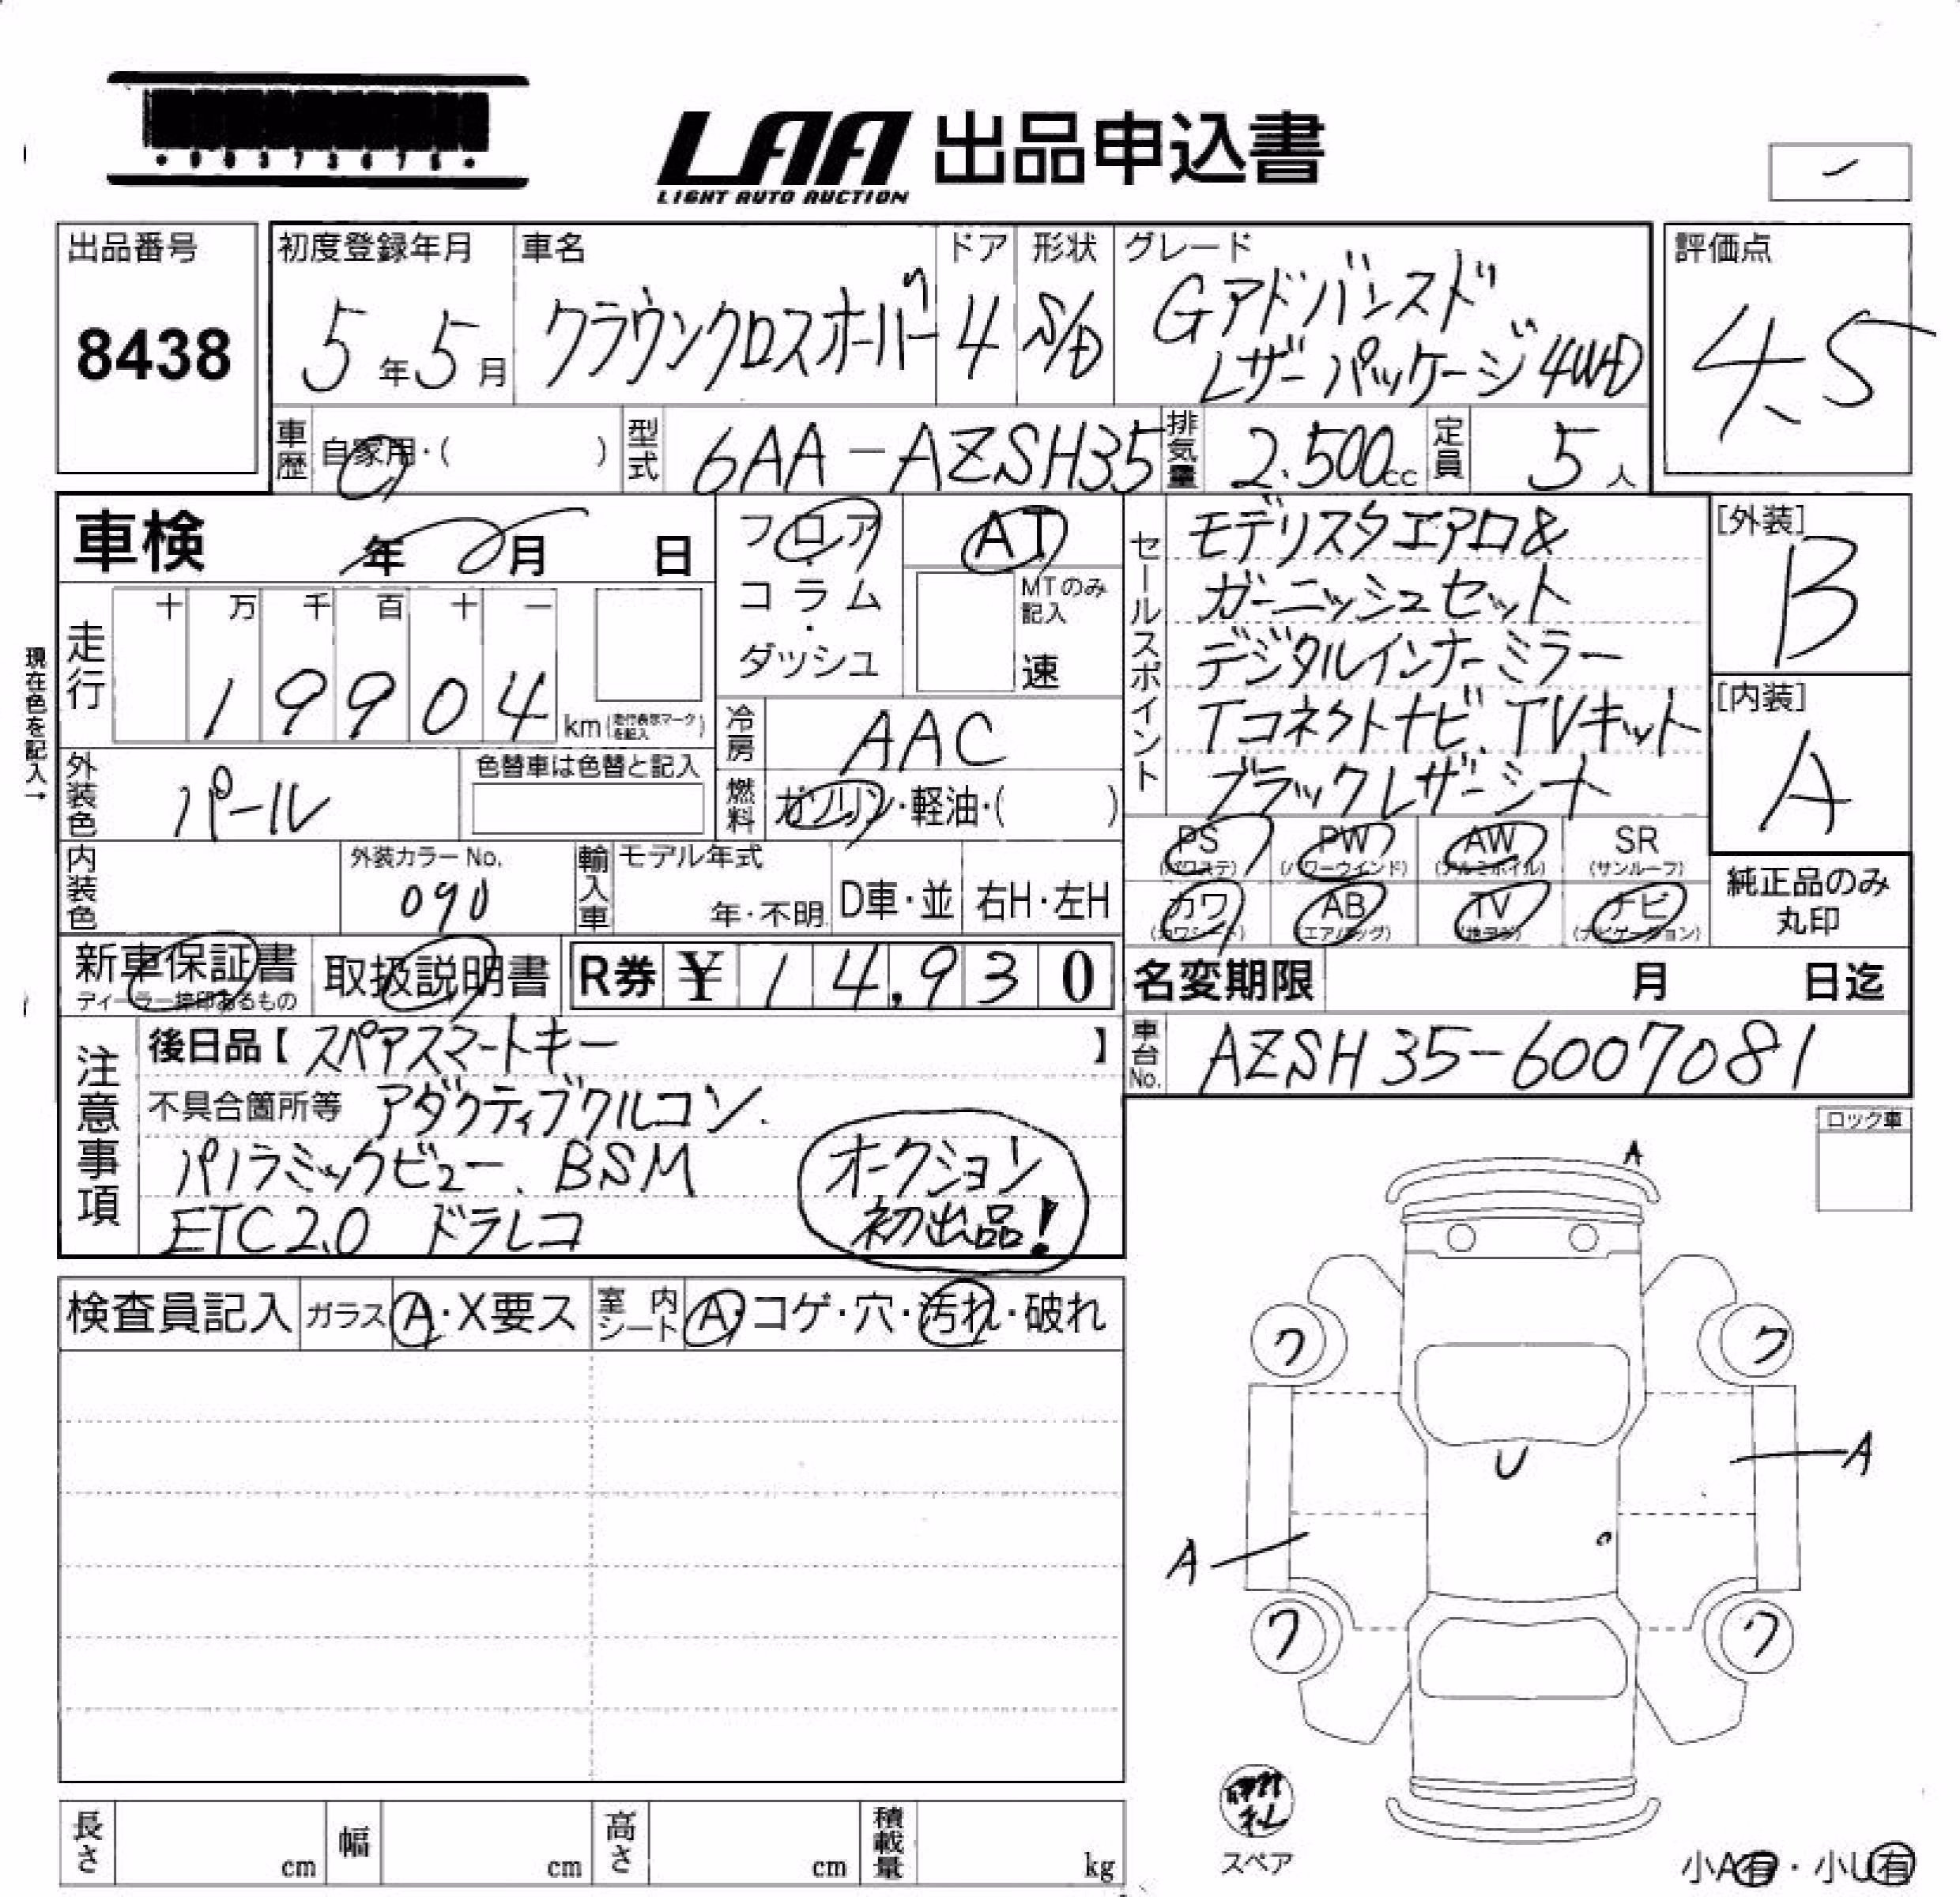 LAA 出品申込書
LIGHT AUTO AUCTION
出品番号
8438
初度登録年月
5年5月
車名
クラウンクロスオーバー
ドア
4
形状
S/D
グレード
Gアドバンスド
レザーパッケージ 4WD
評価点
4.5
車歴
自家用・( )
型式
6AA-AZSH35
排気量
2.500cc
定員
5人
車検 年 月 日
フロア・コラム・ダッシュ
AT
MTのみ記入
速
現在色を記入→
走行
十 万 千 百 十 一
19904
km(走行表示マークを記入)
冷房
AAC
燃料
ガソリン・軽油・( )
外装色
パール
色替車は色替と記入
内装色
外装カラーNo.
090
輸入車
モデル年式
年・不明
D車・並
右H・左H
セールスポイント
モデリスタエアロ&
ガーニッシュセット
デジタルインナーミラー
Tコネクトナビ、TVキット
ブラックレザーシート
[外装]
B
[内装]
A
PS (パワステ)
PW (パワーウインド)
AW (アルミホイル)
SR (サンルーフ)
カワ (カワシート)
AB (エアバッグ)
TV
ナビ (ナビゲーション)
純正品のみ
丸印
新車保証書
ディーラー捺印あるもの
取扱説明書
R券 ¥14,930
名変期限 月 日迄
車台No.
AZSH35-6007081
注意事項
後日品【スペアスマートキー】
不具合箇所等 アダクティブクルコン.
パノラミックビュー、BSM
ETC2.0 ドラレコ
オークション
初出品!
ロック車
検査員記入
ガラス A・X要ス
室内シート A・コゲ・穴・汚れ・破れ
A
ワ ワ
U
A
A
ワ ワ
スペア
小A有・小U有
長さ cm
幅 cm
高さ cm
積載量 kg